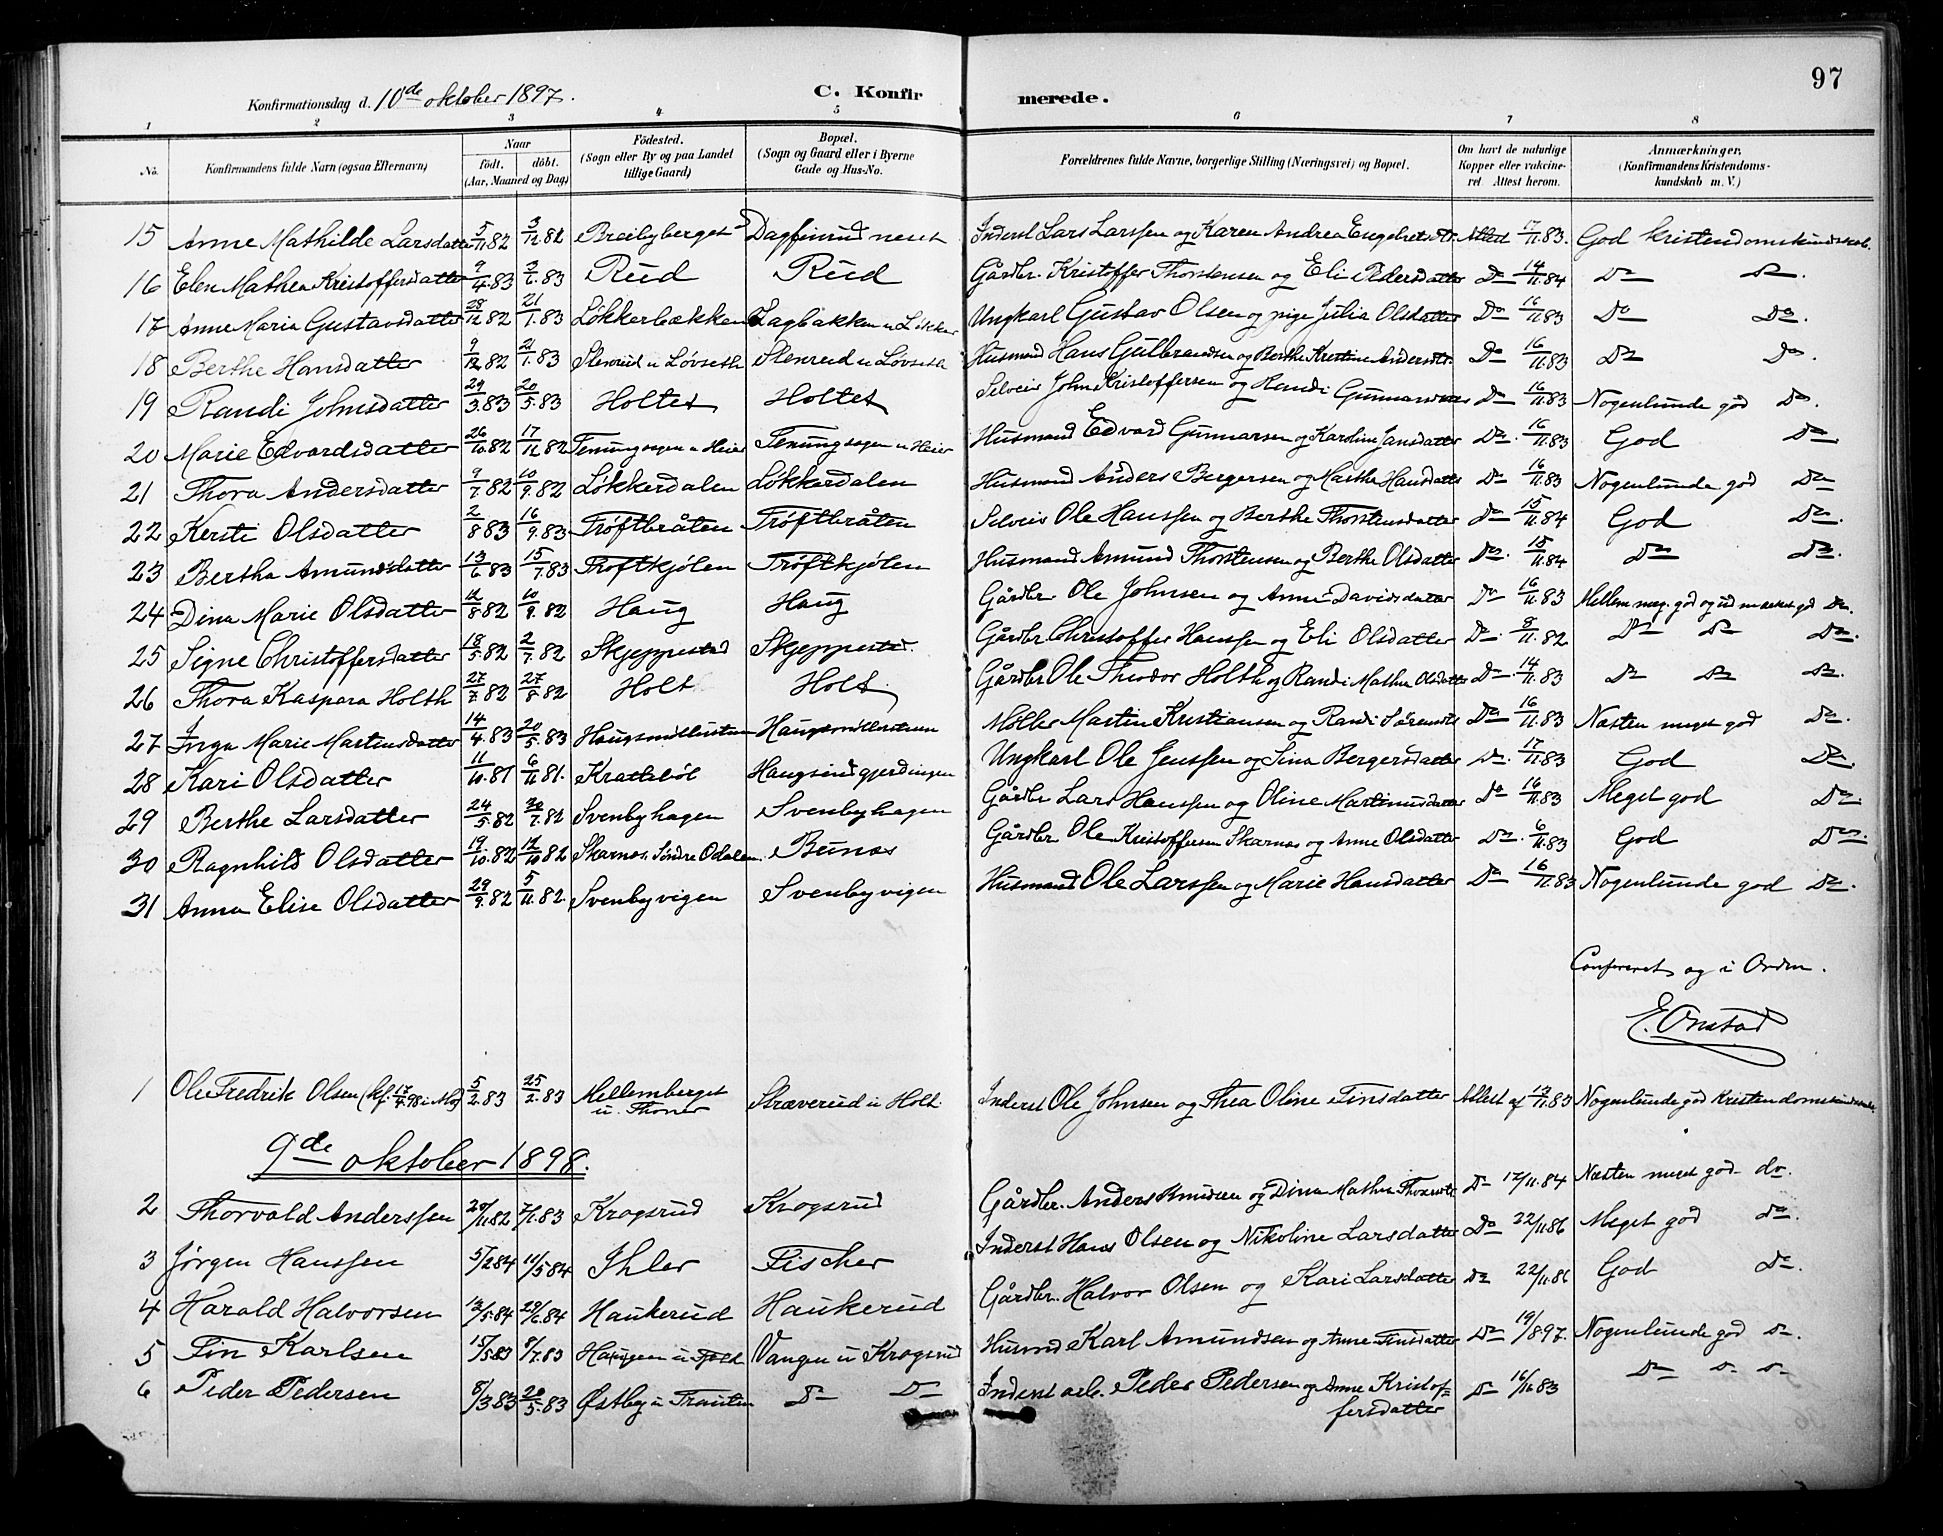 97
Konfirmationsdag d. 10de oktober 1897. C. Konfirmerede.
1 2 3 4 5 6 7 8
No. Konfirmandens fulde Navn (ogsaa Efternavn) Naar født. døbt. (Aar, Maaned og Dag) Födested. (Sogn eller By og paa Landet tillige Gaard) Bopæl. (Sogn og Gaard eller i Byerne Gade og Hus-No. Forældrenes fulde Navne, borgerlige Stilling (Næringsvei) og Bopæl. Om havt de naturlige Kopper eller vakcineret Attest herom. Anmærkninger, (Konfirmandens Kristendomskundskab m. V.)
15 Anne Mathilde Larsdatter 5/11 82 3/12 82 Breibyberget Dagfinrud neset Inderst Lars Larssen og Karen Andrea Engebretsdtr. Attest 17/11 83. God kristendomskundskab.
16 Elen Mathea Kristoffersdatter 9/4 83 3/6 83 Rud Rud Gårdbr. Kristoffer Thorstensen og Eli Pedersdatter Do 14/11 84 Do Do.
17 Anne Maria Gustavsdatter 28/12 82 21/1 83 Løkkerbækken Lagbakken u. Løkker Ungkarl Gustav Olsen og pige Julia Olsdatter Do 16/11 83 Do Do.
18 Berthe Hansdatter 9/12 82 21/1 83 Stenrud u Løvseth Stenrud u Løvseth Husmand Hans Gulbrandsen og Berthe Kristine Andersdtr. Do 16/11 83 Do Do.
19 Randi Johnsdatter 29/3 83 20/5 83 Holtet Holtet Selveier John Kristoffersen og Randi Gunnarsdtr Do 16/11 83 Nogenlunde god Do.
20 Marie Edvardsdatter 26/10 82 17/12 82 Tenungsagen u Heier Tenungsagen u Heier Husmand Edvard Gunnarsen og Karoline Jansdatter Do. 16/11 83 God Do
21 Thora Andersdatter 9/7 82 10/9 82 Løkkerdalen Løkkerdalen Husmand Anders Bergersen og Marthe Hansdatter Do 16/11 83 Nogenlunde god Do
22 Kersti Olsdatter 2/8 83 16/9 83 Trøftbråten Trøftbråten Selveier Ole Hanssen og Berthe Thorstensdatter Do 15/11 84 God Do.
23 Bertha Amundsdatter 13/6 83 15/7 83 Trøftkjølen Trøftkjølen Husmand Amund Thorstensen og Berthe Olsdatter Do. 15/11 84 Do Do.
24 Dina Marie Olsdatter 12/8 82 10/9 82 Haug Haug Gårdbr Ole Johnsen og Anne Davidsdatter Do 16/11 83 Mellem meg. god og udmærket god Do.
25 Signe Christoffersdatter 18/5 82 2/7 82 Skjeppestad Skjeppestad. Gårdbr Christoffer Hanssen og Eli Olsdatter Do. 8/11 82 Do Do Do.
26 Thora Kaspara Holth 27/7 82 27/8 82 Holt Holt Gårdbr Ole Theodor Holth og Randi Mathea Olsdatter Do. 14/11 83 Do Do Do.
27 Inga Marie Martinsdatter 14/4 83 20/5 83 Haugsmøllestuen Haugsmøllestuen Møller Martin Kristiansen og Randi Sørensdtr Do 16/11 83 Næsten meget god Do.
28 Kari Olsdatter 11/10 81 6/11 81. Kratebøl Haugsindgjerdingen Ungkarl Ole Jenssen og Sina Bergersdatter Do. 17/11 83 God Do.
29 Berthe Larsdatter 24/5 82 30/7 82 Svenbyhagen Svenbyhagen Gårdbr Lars Hanssen og Oline Martinusdatter Do 16/11 83 Meget god Do.
30 Ragnhild Olsdatter 19/10 82 Skarnos, Søndre Odalen. Bunæs Gårdbr. Ole Kristoffersen Skarnos og Anne Olsdatter Do. 6/11 83 God Do.
31 Anna Elise Olsdatter 29/9 82 5/11 82. Svenbyvigen Svenbyvigen Husmand Ole Larssen og Marie Hansdatter Do 16/11 83 Nogenlunde god Do.
Confereret og i Orden.
E. Onstad
1 Ole Fredrik Olsen (kf. 17/4 98 i Mo) 5/2 83 25/2 83 Mellemberget u. Thoner Stræverud u Holt Inderst Ole Johnsen og Thea Oline Finsdatter Attest af 13/11 83 Nogenlunde god Kristendomskundskab
9de oktober 1898.
2 Thorvald Anderssen 20/11 82 7/1 83 Krogsrud Krogsrud Gårdbr. Anders Knudsen og Dina Mathea Thoresdtr Do 12/11 84 Næsten meget god do.
3 Jørgen Hanssen 5/2 84 11/5 84 Ihler Fischer Inderst Hans Olsen og Nikoline Larsdatter Do 22/11 86 Meget god do.
4 Harald Halvorsen 13/5 84 29/6 84 Haukerud Haukerud Gårdbr. Halvor Olsen og Kari Larsdatter Do 22/11 86 God Do.
5 Fin Karlsen 15/5 83 8/7 83 Haugen u Vangen u Krogsrud Husmd Karl Amundsen og Anne Finsdatter Do 19/8 97. Nogenlunde god Do.
6 Peder Pedersen 8/3 83 20/5 83 Østby u Do Do Inderst arb. Peder Pedersen og Anne Kristoffersdatter Do 16/11 83 Do Do Do